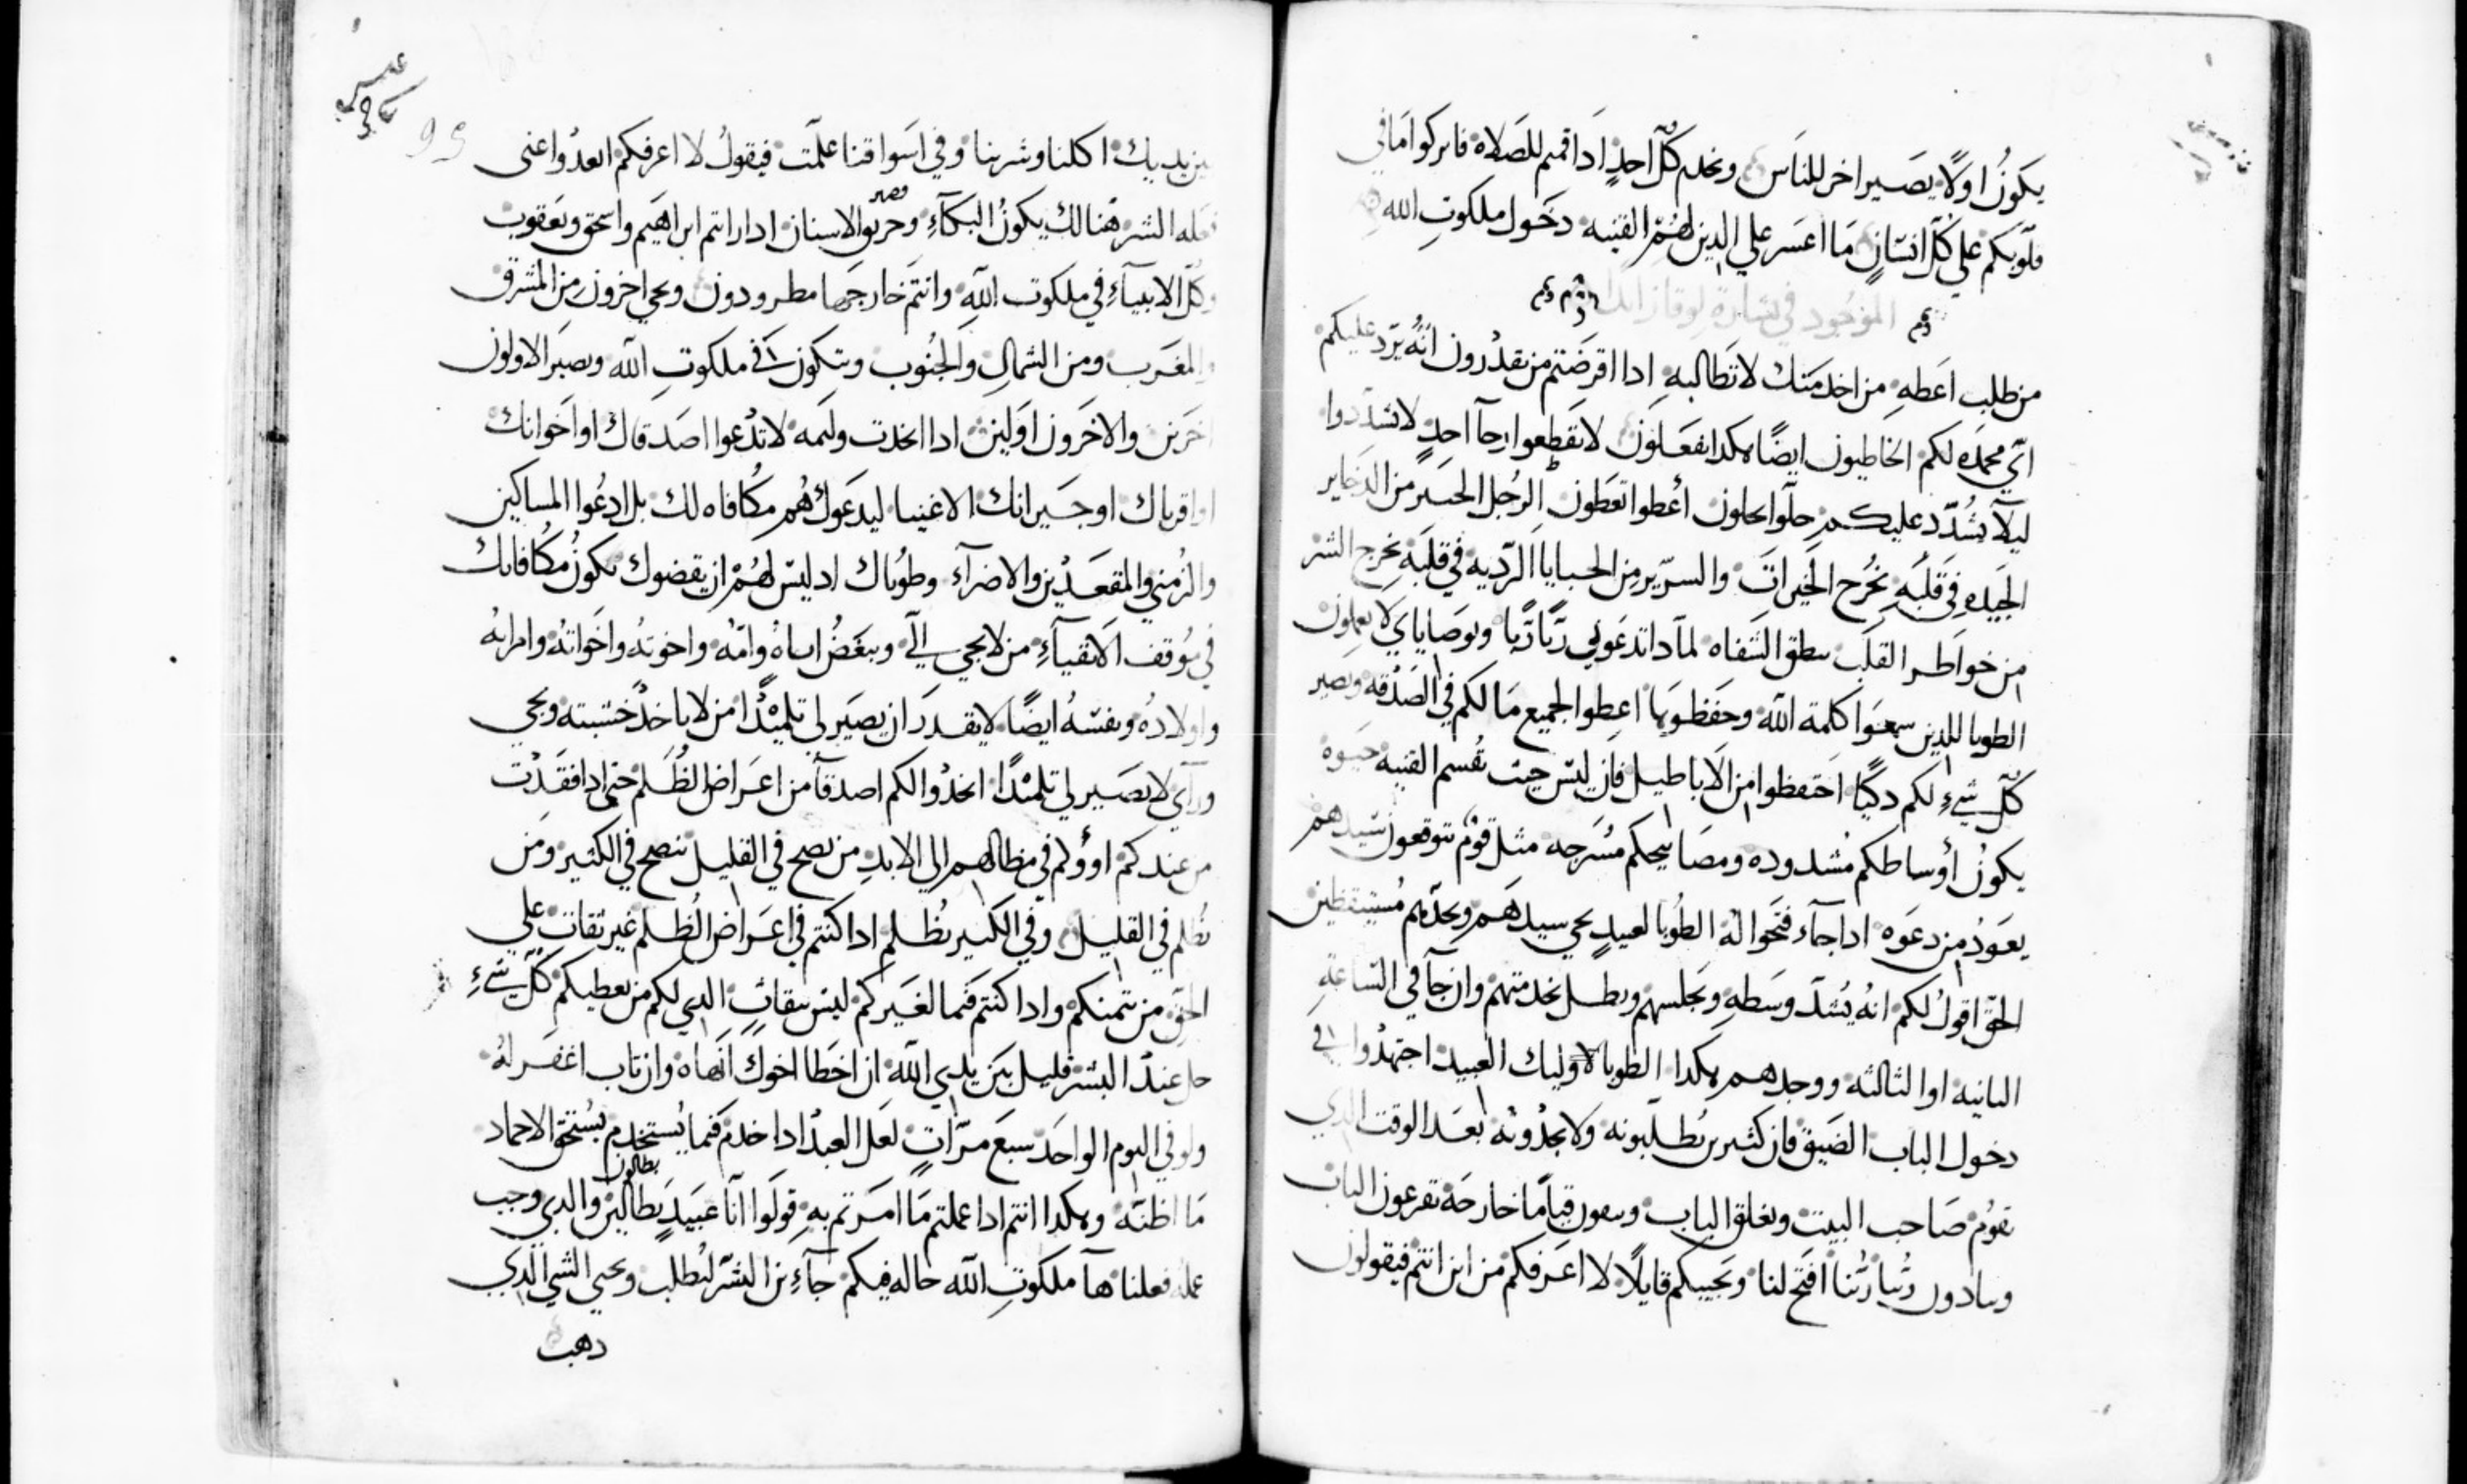 يكونُ اولًا يصير اخر للناس وخادم كل احدٍ ادا قمتم للصَلاه فاتركوا اما في
قلوبكم علي كُل انسَانٍ مَا اعسَر علي الدين لهُمْ القنيه دخول ملكوتِ الله
الموجود في بشارة لوقا زايدا
من طلب اعطهِ من اخد متك لا تطالبهِ ادا اقرضتم من تقدرون انهُ يرد عليكم
اي محمده لكم الخاطيون ايضًا هكدا يفعلون لا تقطعوا رجآ احدٍ لا تشددوا
ليلآ يشُدّد عليكم حلّوا تحلون أعطوا تعطون الرجُل الخير من الدخاير
الجيده في قلبَهِ يخُرج الخيراتَ والسرّير من الخبايا الرّديه في قلبَهِ يخرج الشر
من خواطر القلب ينطق الشفاه لمآدا تدعوني ربًّا ربًّا وبوصاياي لا يعملون
الطوبا للدين سمعَوا كلمة الله وحَفظوَها اعطوا الجميع مَا لكم في الصدقه ويصير
كلّ شيءٍ لكم دكيًا احتفظوا من الاباطيل فان ليس حيث تقُسم القنيه حَيوة
يكونُ أوساطكم مُشدوده ومصَابيحكم مُسَرجه مثل قومٌ يتوقعون سَيدهمْ
يعَودُ من دعَوه ادا جآء فتحوا لهُ الطُوبا لعبيدٍ يجي سيدهَم ويجدهم مُستيقظين
الحق اقولُ لكم انهُ يُشدّ وسَطهِ ويجلسهم ويظل يخدمهم وان جآ في السّاعة
التانيه او الثالثه ووجدهم هكدا الطوبا لاوليك العبيد اجتهدُوا في
دخول الباب الضَيق فان كثيرين يُطلبونه ولا يجدُونه بعَد الوقت الدي
يقومْ صَاحب البيت ويغلق الباب ويبقون قيامًا خارجَه تقرعون الباب
وينادون رُبنا رُبنا افتح لنا ويجيبكم قايلًا لا اعرَفكم من اين انتم فيقولون
بين يديك اكلنا وشربنا وفي اسواقنا علمّت فيقولُ لا اعرفكم ابعدُوا عني
فعله الشر هَنالك يكونُ البكآءِ وصرير وحريق الاسنان ادا رايتم ابراهيَم واسحق ويَعقوب
وكلّ الانبيآءِ في ملكوت اللهِ وانتم خارجهَا مطرودون ويجي اخرون من المشرق
والمغرب ومن الشمالِ والجنُوب ويتكون في ملكوتِ اللّه ويصير الاولون
اخرين والاخرون اولين ادا اتخدت وليَمه لا تدْعوا اصدقاك او اخوانك
او اقرباك او جَيرانك الاغنيا ليدعَوك هُم مكُافاه لك بل ادعُوا المساكين
والزُمني والمقعَدْين والاضرآءِ وطوُباك اد ليس لهُمْ ان يقضوك يكونُ مكُافاتك
في موُقف الاتقيآءِ من لا يجي اليّ ويبغضُ اباهُ وامّهُ واخوتهُ واخَواتهُ وامراتهُ
واولادهُ ونفسَهُ ايضًا لا يقدرَ ان يصيَر لي تلميْدًا من لا ياخدْ خشبته ويجي
ورآي لا يصَير لي تلميْدًا اتخدوا لكم اصدقآ من اعَراض الظُلم حتي ادا فقدْت
من عندكم اووُكم في مظالهم الي الابدِ من نصح في القليل ينصح في الكثير ومَن
يُظلم في القليل وفي الكثير يُظلم ادا كنتم في اعَراض الُظلم غير ثقات علي
الحق من يتمنكم وادا كنتم فَيما لغَيركمْ ليسَ بثقاتٍ الدي لكم من يعطيكم كلّ شيءٍ
جل عندْ البشر قليل بين يدي اللّه ان اخطا اخوكَ انهاه وان تاب اغفرَ لهُ
ولو في اليوم الواحَد سبعَ مرّاتٍ لعَل العبدْ ادا خدم فيَما يُستخدم يُستحق الاحماد
مَا اظنّه وهكدا انتم ادا عملتم مَا امرَتم بهِ قولوَا انآ عبَيدٍ بطالين بطالون والدي وجب
عملهُ فعلنا هآ ملكوتِ اللّه حاله فيكم جآءِ بن البشرْ ليُطلب ويحيي الشي الدي
دهب